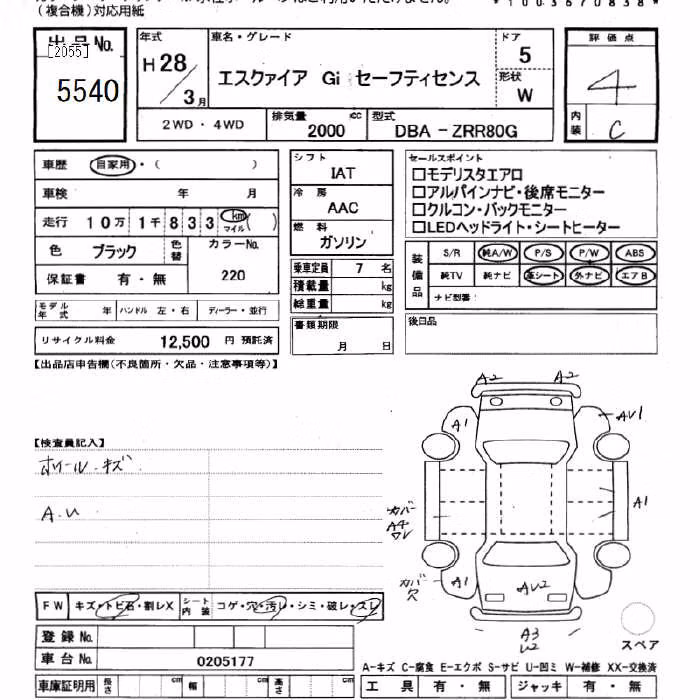 (複合機)対応用紙
*1003670838*
出品No.
[2055]
5540
年式
H28
3月
車名・グレード
エスクァイア Gi セーフティセンス
ドア
5
形状
W
評価点
4
内装
C
2WD・4WD
排気量
cc
2000
型式
DBA-ZRR80G
車歴
自家用・( )
車検
年 月
走行
10万1千833
km
マイル
( )
色
ブラック
色替
カラーNo.
220
保証書
有・無
モデル年式
年
ハンドル 左・右
ディーラー・並行
リサイクル料金
12,500 円 預託済
シフト
IAT
冷房
AAC
燃料
ガソリン
乗車定員 7 名
積載量 kg
総重量 kg
書類期限
月 日
セールスポイント
□モデリスタエアロ
□アルパインナビ・後席モニター
□クルコン・バックモニター
□LEDヘッドライト・シートヒーター
装備品
S/R 純A/W P/S P/W ABS
純TV 純ナビ 革シート 外ナビ エアB
ナビ型番:
後日品
【出品店申告欄(不良箇所・欠品・注意事項等)】
【検査員記入】
ホイール キズ
A.U
A2
A2
A1
AU1
A1
カバー
A4
ワレ
カバー
穴
A1
AU2
A1
A3
U2
スペア
FW
キズ・トビ石・割レX
シート内装
コゲ・穴・汚レ・シミ・破レ・スレ
登録No.
車台No.
0205177
車庫証明用
長さ
cm
幅
cm
高さ
cm
A-キズ C-腐食 E-エクボ S-サビ U-凹ミ W-補修 XX-交換済
工具 有・無
ジャッキ 有・無